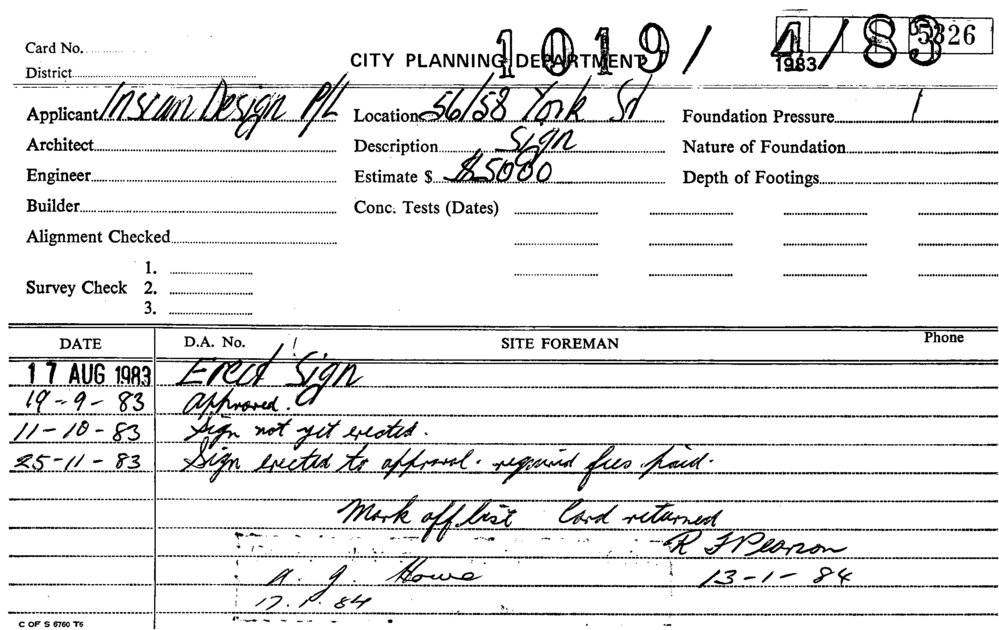 Card No.
1019/ 4/83
5326
1983
CITY PLANNING DEPARTMENT
District
Applicant Inscan Design P/L Location 56/58 York St Foundation Pressure
Architect Description Sign Nature of Foundation
Engineer Estimate $ $5000 Depth of Footings
Builder Conc. Tests (Dates)
Alignment Checked
1.
Survey Check 2.
3.
DATE D.A. No. SITE FOREMAN Phone
17 AUG 1983 Erect Sign
19-9-83 Approved.
11-10-83 Sign not yet erected.
25-11-83 Sign erected to approval. required fees paid.
Mark off list Card returned
R F Pearson
A. J. Howe 13-1-84
17.1.84
C OF S 6760 T6